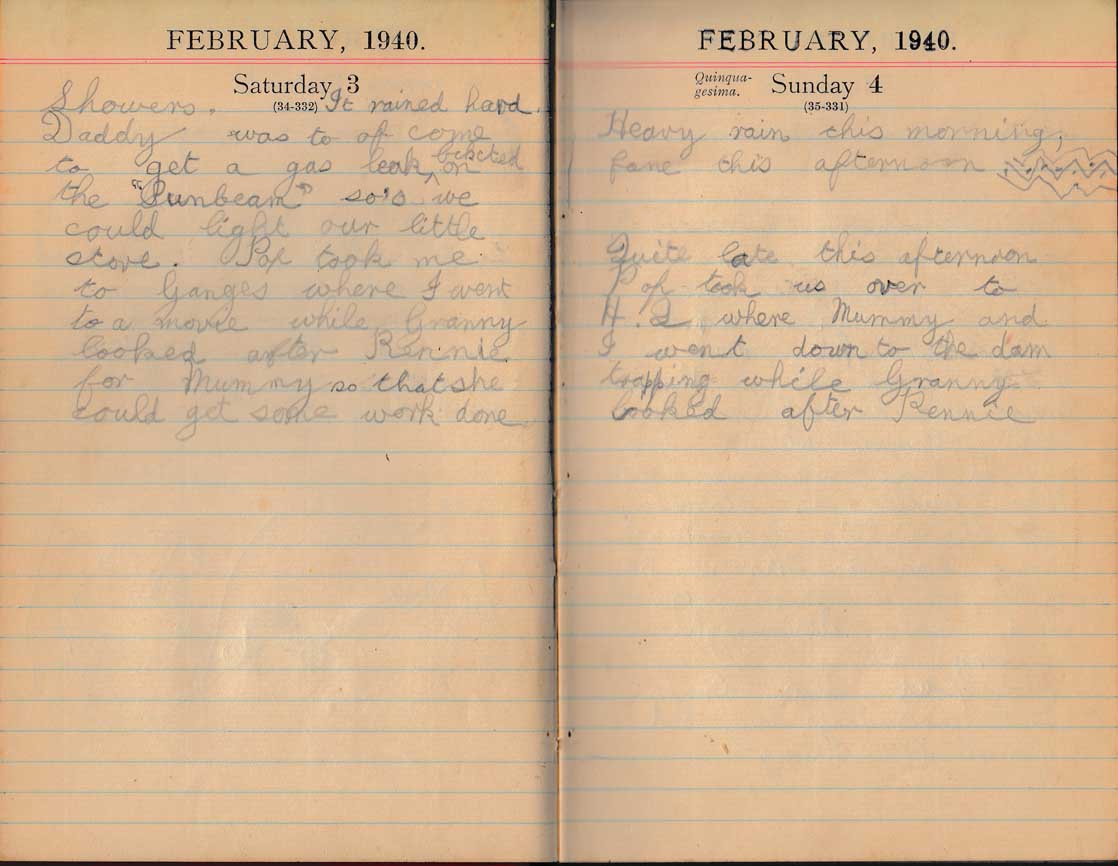 FEBRUARY, 1940.
Saturday 3
(34-332)
Showers. It rained hard.
Daddy was to of come
to get a gas leak on
the "Sunbeam" so's we
could light our little
stove. Pop took me
to Ganges where I went
to a movie while Granny
looked after Rennie
for Mummy so that she
could get some work done
FEBRUARY, 1940.
Quinqua-
gesima.
Sunday 4
(35-331)
Heavy rain this morning,
fane this afternoon
Quite late this afternoon
Pop took us over to
H. Q where Mummy and
I went down to the dam
trapping while Granny
looked after Rennie